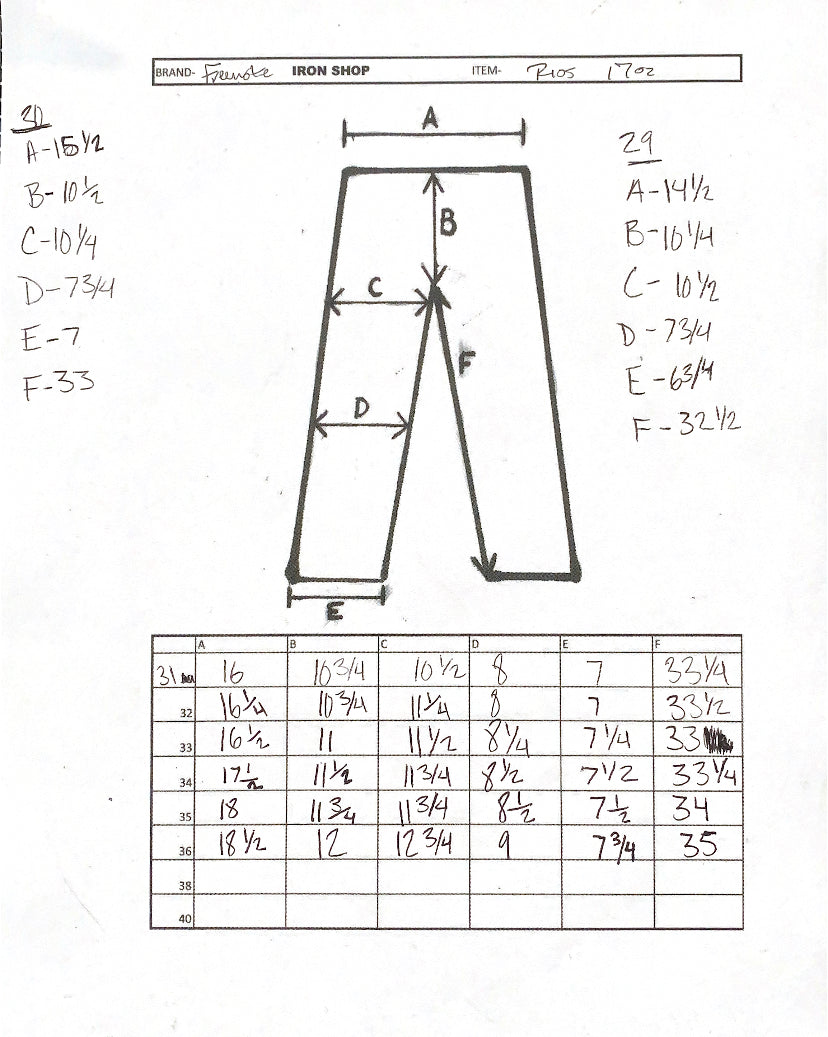 BRAND- Freenote IRON SHOP ITEM- Rios 17oz
30
A-15 1/2
B-10 1/2
C-10 1/4
D-7 3/4
E-7
F-33
29
A-14 1/2
B-10 1/4
C-10 1/2
D-7 3/4
E-6 3/4
F-32 1/2
A
B
C
F
D
E
A B C D E F
31 16 10 3/4 10 1/2 8 7 33 1/4
32 16 1/4 10 3/4 11 1/4 8 7 33 1/2
33 16 1/2 11 11 1/2 8 1/4 7 1/4 33
34 17 1/2 11 1/2 11 3/4 8 1/2 7 1/2 33 1/4
35 18 11 3/4 11 3/4 8 1/2 7 1/2 34
36 18 1/2 12 12 3/4 9 7 3/4 35
38
40